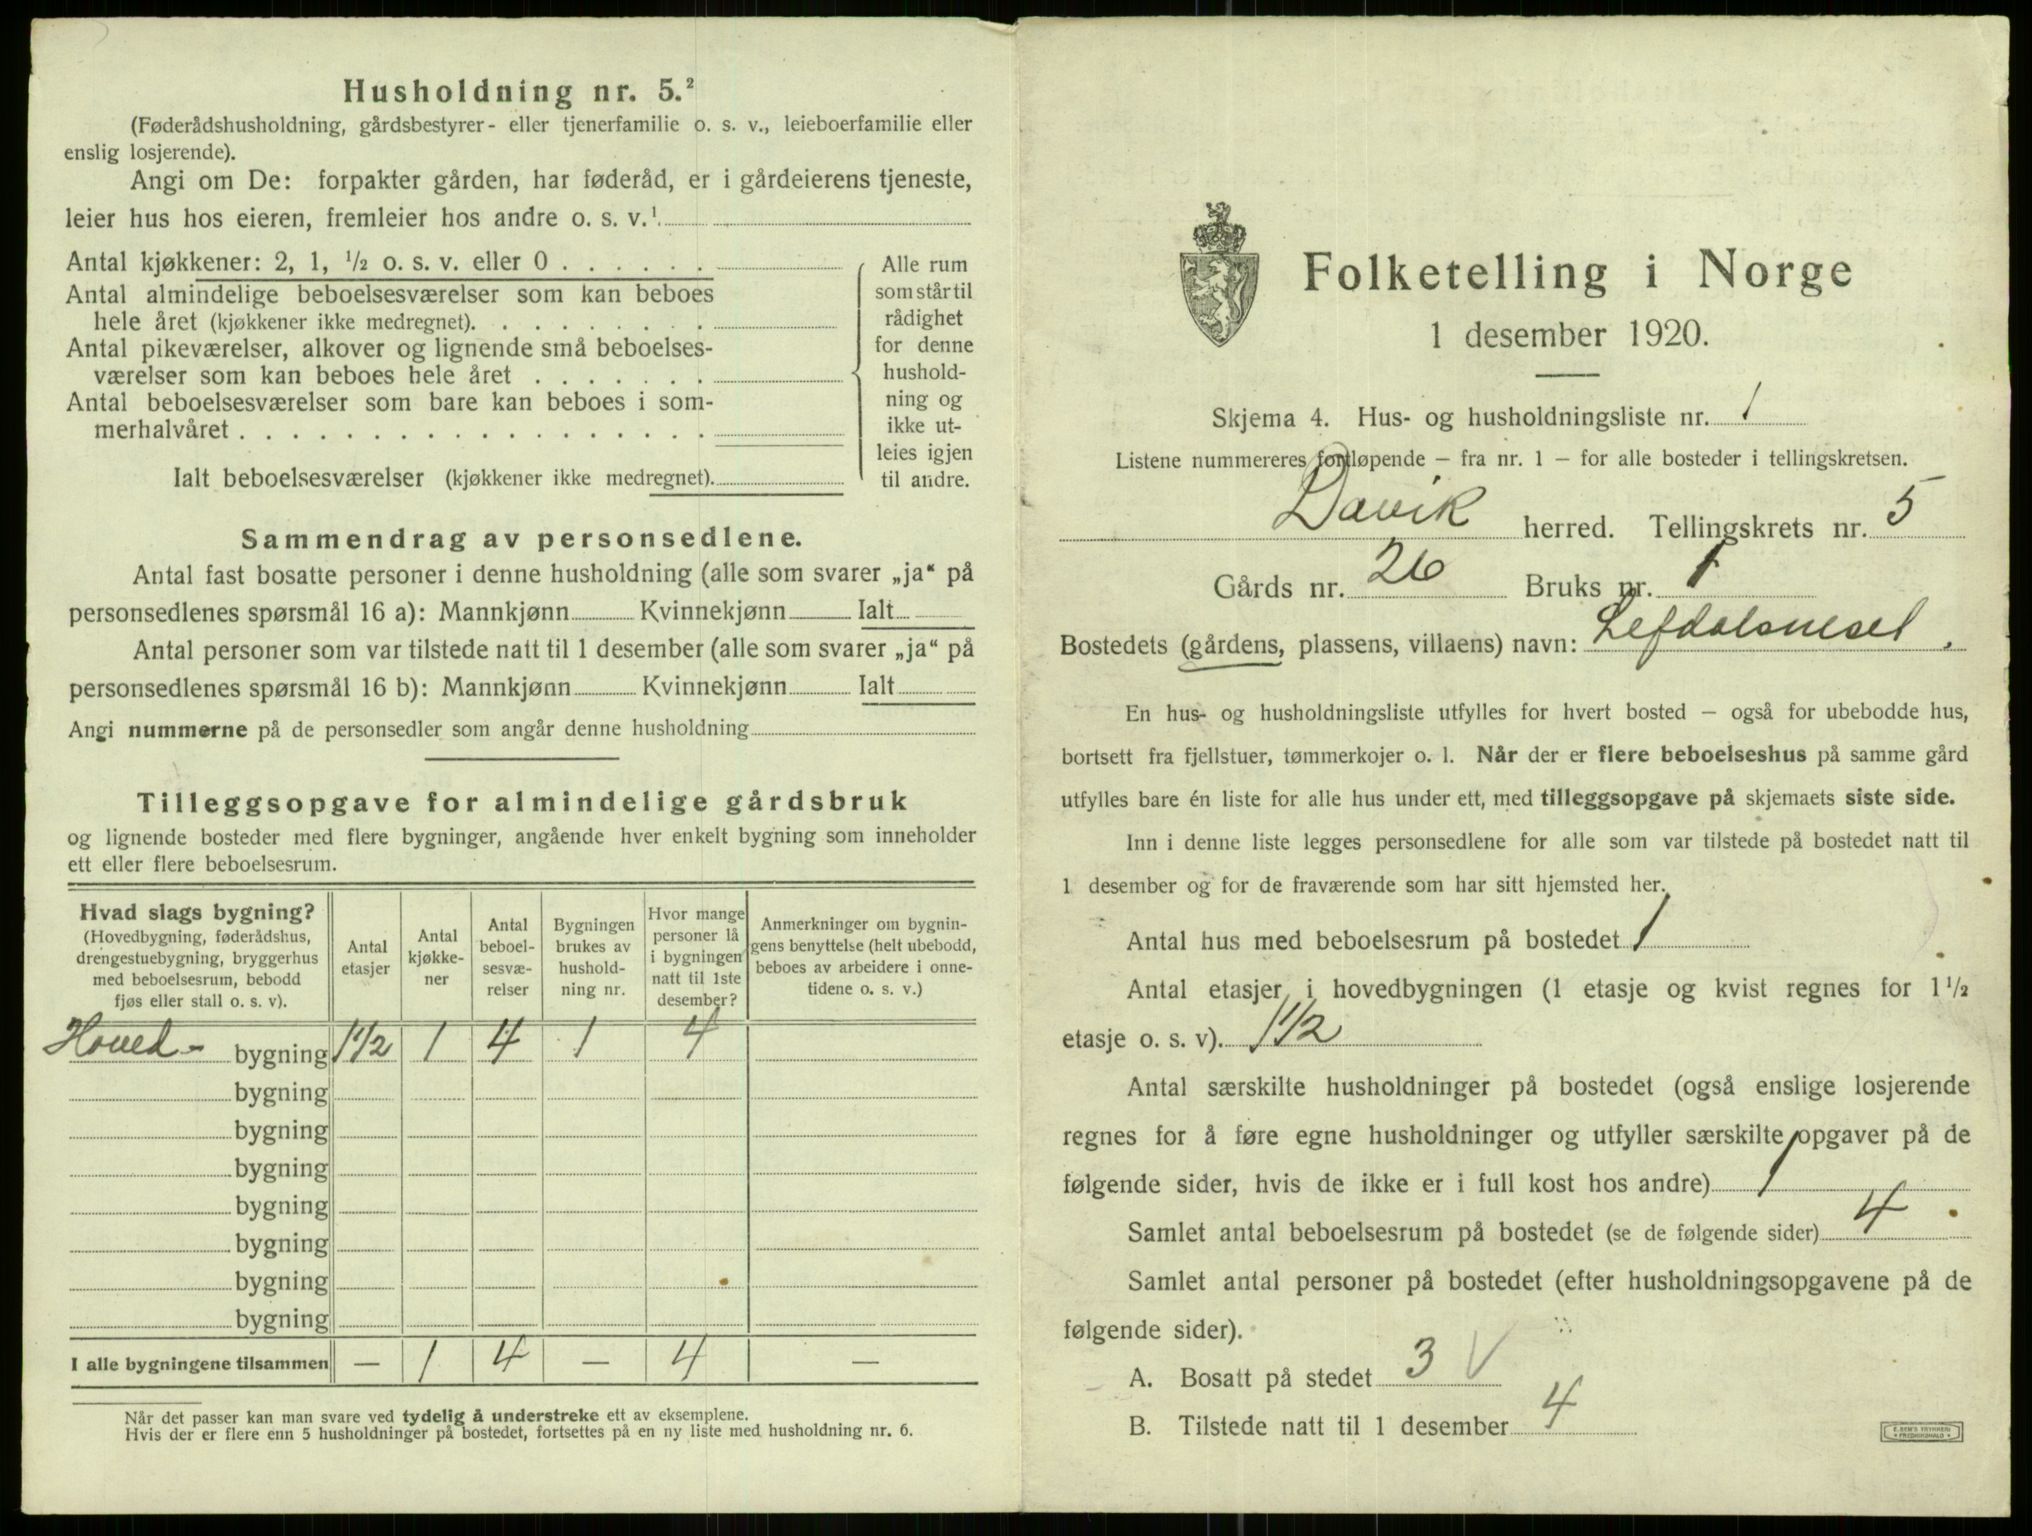 Husholdning nr. 5.²
(Føderådshusholdning, gårdsbestyrer- eller tjenerfamilie o. s. v., leieboerfamilie eller
enslig losjerende).
Angi om De: forpakter gården, har føderåd, er i gårdeierens tjeneste,
leier hus hos eieren, fremleier hos andre o. s. v.¹
Antal kjøkkener: 2, 1, ½ o. s. v. eller 0 . . . . . .
Antal almindelige beboelsesværelser som kan beboes
hele året (kjøkkener ikke medregnet). . . . . . . . .
Antal pikeværelser, alkover og lignende små beboelses-
værelser som kan beboes hele året . . . . . . .
Antal beboelsesværelser som bare kan beboes i som-
merhalvåret . . . . . . . . . . . . . . . . . .
Ialt beboelsesværelser (kjøkkener ikke medregnet).
Alle rum
som står til
rådighet
for denne
hushold-
ning og
ikke ut-
leies igjen
til andre.
Sammendrag av personsedlene.
Antal fast bosatte personer i denne husholdning (alle som svarer „ja“ på
personsedlenes spørsmål 16 a): Mannkjønn Kvinnekjønn Ialt
Antal personer som var tilstede natt til 1 desember (alle som svarer „ja“ på
personsedlenes spørsmål 16 b): Mannkjønn Kvinnekjønn Ialt
Angi nummerne på de personsedler som angår denne husholdning
Tilleggsopgave for almindelige gårdsbruk
og lignende bosteder med flere bygninger, angående hver enkelt bygning som inneholder
ett eller flere beboelsesrum.
Hvad slags bygning?
(Hovedbygning, føderådshus,
drengestuebygning, bryggerhus
med beboelsesrum, bebodd
fjøs eller stall o. s. v).
Antal
etasjer
Antal
kjøkke-
ner
Antal
beboel-
sesvæ-
relser
Bygningen
brukes av
hushold-
ning nr.
Hvor mange
personer lå
i bygningen
natt til 1ste
desember?
Anmerkninger om bygnin-
gens benyttelse (helt ubebodd,
beboes av arbeidere i onne-
tidene o. s. v.)
Hoved- bygning 1½ 1 4 1 4
bygning
bygning
bygning
bygning
bygning
bygning
bygning
I alle bygningene tilsammen — 1 4 — 4 —
Når det passer kan man svare ved tydelig å understreke ett av eksemplene.
Hvis der er flere enn 5 husholdninger på bostedet, fortsettes på en ny liste med husholdning nr. 6.
Folketelling i Norge
1 desember 1920.
Skjema 4. Hus- og husholdningsliste nr. 1
Listene nummereres fortløpende – fra nr. 1 – for alle bosteder i tellingskretsen.
Davik herred. Tellingskrets nr. 5
Gårds nr. 26 Bruks nr. 1
Bostedets (gårdens, plassens, villaens) navn: Lefdalsneset.
En hus- og husholdningsliste utfylles for hvert bosted – også for ubebodde hus,
bortsett fra fjellstuer, tømmerkojer o. l. Når der er flere beboelseshus på samme gård
utfylles bare én liste for alle hus under ett, med tilleggsopgave på skjemaets siste side.
Inn i denne liste legges personsedlene for alle som var tilstede på bostedet natt til
1 desember og for de fraværende som har sitt hjemsted her.
Antal hus med beboelsesrum på bostedet 1
Antal etasjer i hovedbygningen (1 etasje og kvist regnes for 1½
etasje o. s. v). 1½
Antal særskilte husholdninger på bostedet (også enslige losjerende
regnes for å føre egne husholdninger og utfyller særskilte opgaver på de
følgende sider, hvis de ikke er i full kost hos andre) 1
Samlet antal beboelsesrum på bostedet (se de følgende sider) 4
Samlet antal personer på bostedet (efter husholdningsopgavene på de
følgende sider).
A. Bosatt på stedet 3 V
B. Tilstede natt til 1 desember 4
E. SEM'S TRYKKERI
FREDRIKSHALD